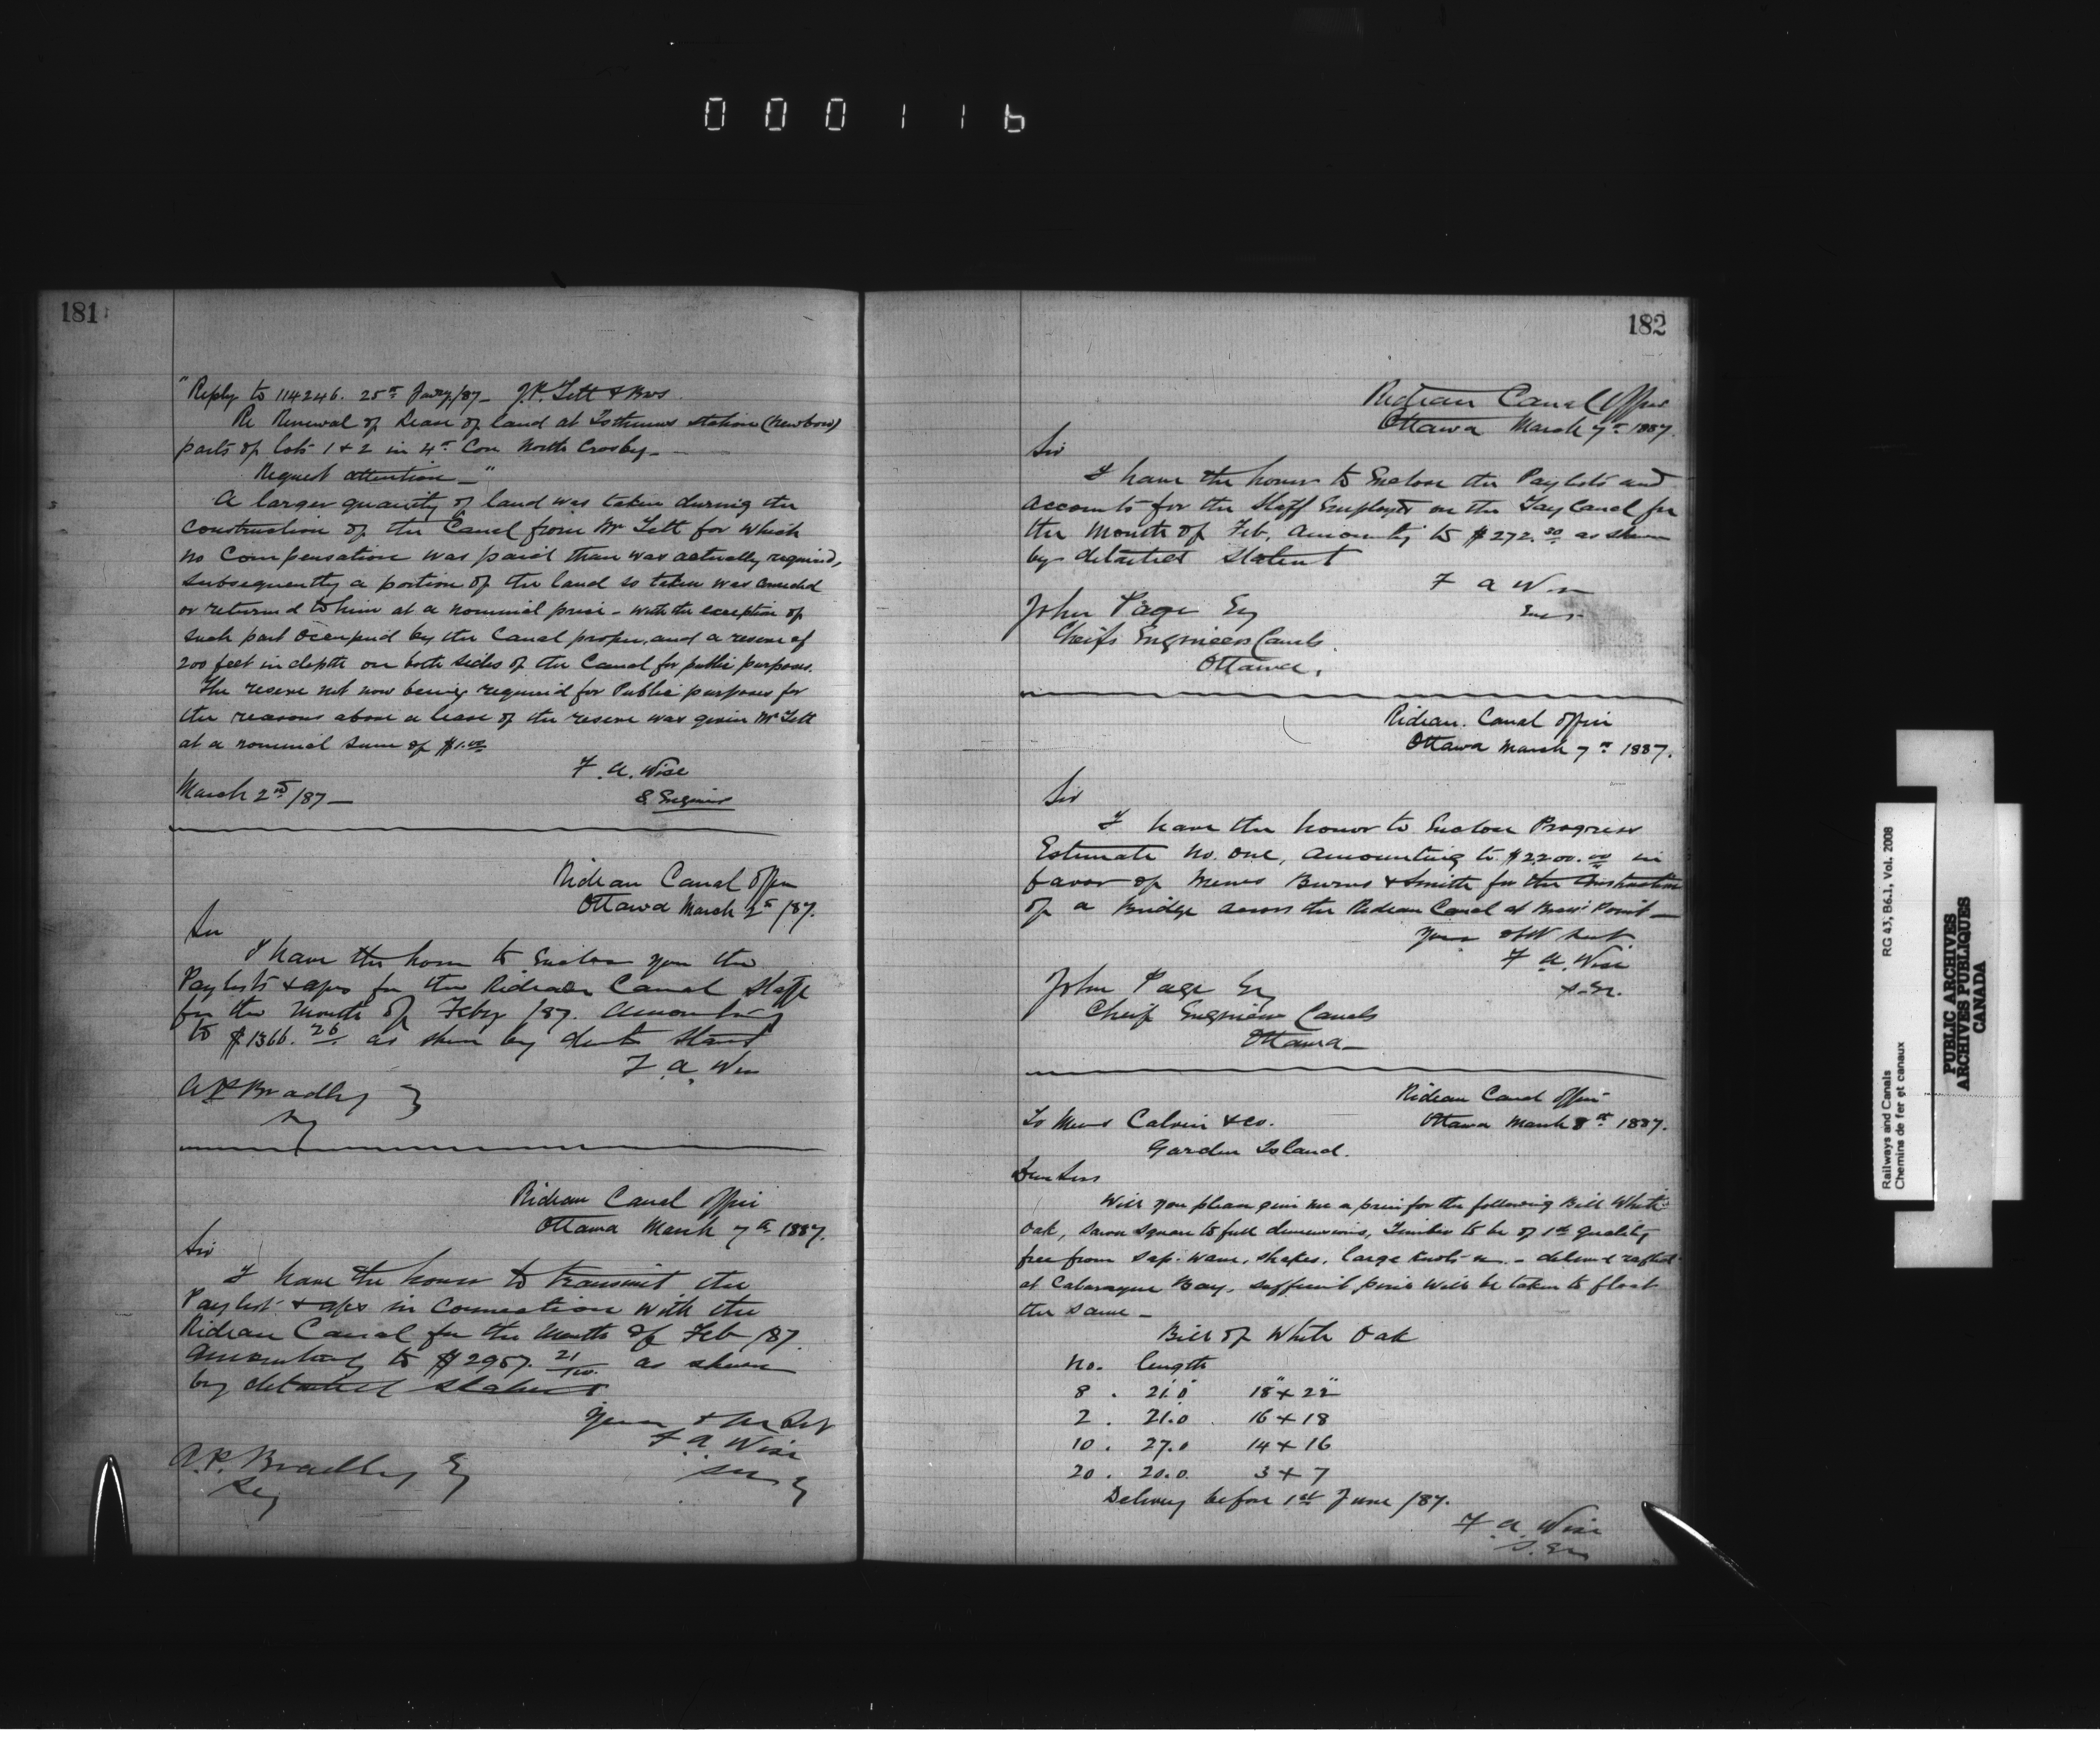 000116
181
"Reply to 114246. 25th Jany/87 - J.P. Tett & Bros.
Re Renewal of Lease of land at Isthmus station (Newboro)
parts of lots 1 & 2 in 4th Con North Crosby -
Request attention - "
A larger quantity of land was taken during the
construction of the Canal from Mr Tett for which
no compensation was paid than was actually required,
subsequently a portion of the land so taken was
or returned to him at a nominal price - with the exception of
such part occupied by the Canal proper, and a reserve of
200 feet in depth on both sides of the Canal for public purposes.
The reserve not now being required for Public purposes for
the reasons above a lease of the reserve was given Mr Tett
at a nominal sum of $1.00
F. A. Wise
March 2nd/87 -
S Engineer
Rideau Canal Office
Ottawa March 2nd/87.
Sir
I have the honor to Enclose you the
Paylists & a/cs for the Rideau Canal Staff
for the Month of Feby /87. Amounting
to $1366.26 as shewn by
F. A. Wise
A P Bradley
Sy
Rideau Canal Office
Ottawa March 7th 1887.
Sir
I have the honor to transmit the
Paylist & a/cs in Connection with the
Rideau Canal for the Month of Feb /87.
Amounting to $2957. 21/100. as shewn
by detailed statement
Yours
F. A. Wise
A.P. Bradley Esq
Secy
182
Rideau Canal Office
Ottawa March 7th 1887.
Sir
I have the honor to Enclose the Paylists and
Accounts for the Staff Employed on the Tay Canal for
the Month of Feb. Amounting to $272.30 as shewn
by detailed statent
F A Wise
John Page Esq
Cheifs Engineers Canals.
Ottawa.
Rideau Canal Office
Ottawa March 7th 1887.
Sir
I have the honor to Enclose Progress
Estimate No. One, amounting to $2200.00 in
favor of Messrs Burns & Smith for the Construction
of a Bridge across the Rideau Canal at Point -
Your obt Servt.
F. A. Wise
S. En.
John Page Esq
Cheif Engineer Canals
Ottawa -
Rideau Canal Office
To Messrs Calvin & Co.
Ottawa March 8th 1887.
Garden Island.
Dear Sirs
Will you please give me a price for the following Bill White
Oak, sawn square to full dimensions, Timber to be of 1st quality
free from sap. wane, shakes, large knots - delivered rafted
at Cataraqui Bay, sufficient pine will be taken to float
the same -
Bill of White Oak
No. length
8 . 21.0 18" x 22"
2 . 21.0 16 x 18
10 . 27.0 14 x 16
20 . 20.0 3 x 7
Delivery before 1st June /87.
F. A. Wise
S. En
Railways and Canals RG 43, B6.1, Vol. 2008
Chemins de fer et canaux
PUBLIC ARCHIVES
ARCHIVES PUBLIQUES
CANADA